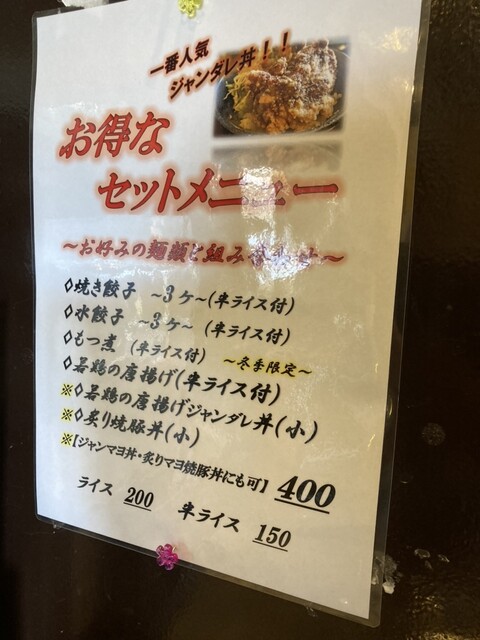 一番人気
ジャンダレ丼！！
お得な
セットメニュー
～お好みの麺類と組み合わせ～
◇焼き餃子 ～3ケ～(半ライス付)
◇水餃子 ～3ケ～ (半ライス付)
◇もつ煮 (半ライス付) ～冬季限定～
◇若鶏の唐揚げ(半ライス付)
※◇若鶏の唐揚げジャンダレ丼(小)
※◇炙り焼豚丼(小)
※【ジャンマヨ丼・炙りマヨ焼豚丼にも可】 400
ライス 200 半ライス 150